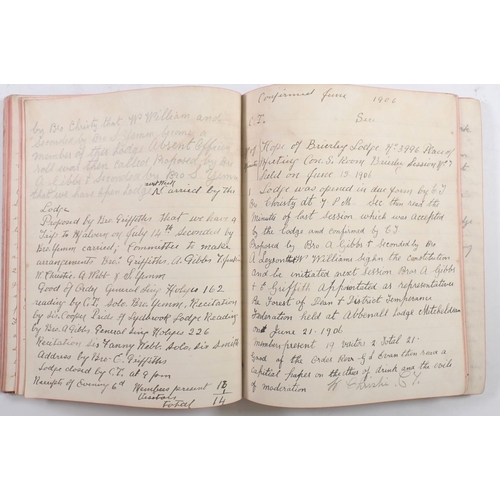 by Bro Christy that Mr William and
Seconded by Bro S Yemm Given a
member of this Lodge Absent Officers
roll was then called Proposed by Bro
A Gibbs & Seconded by Bro S Yemm
that we have open lodge
Carried by the
Lodge
Proposed by Bro. Griffiths that we have a
Trip to Malvern on July 14th Seconded by
Bro. Yemm carried, Committee to make
arrangements Bro. Griffiths, A. Gibbs
W. Christie. A. Webb &
Good of Order General Sing Hodges 162
reading by C.T. Solo Bro. Yemm, Recitation
by Sis. Cooper Pride of Lydbrook Lodge Reading
by Bro. A Gibbs General Sing Hodges 226
Recitation Sis Fanny Webb. Solo. Sis Smith
Address by Bro. C. Griffiths
Lodge closed by C.T. at 9 pm
Receipts of Evening 6d Members present 13
Visitors 1
total 14
Confirmed June 1906
C.T. Sec
Hope of Brierley Lodge No 3996 Place of
Meeting Coe. S. Room Brierley Session No 7
Held on June 13 1906
Lodge was opened in due form by C T
Bro Christy at 7 P.M. Sec then read the
minutes of last Session which was accepted
by the lodge and confirmed by C T
Proposed by Bro A Gibbs & Seconded by Bro
Mr Williams sign the constitution
and be initiated next Session Bros A. Gibbs
& C Griffith Appointed as representatives
the Forest of Dean & District Temperance
Federation Held at Abbenall Lodge Mitcheldean
on June 21. 1906
member present 19 visitors 2 Total 21.
Good of the Order Bro G. S. Evans then read a
capital paper on the of drink and the evils
of moderation W Christie. C.T.